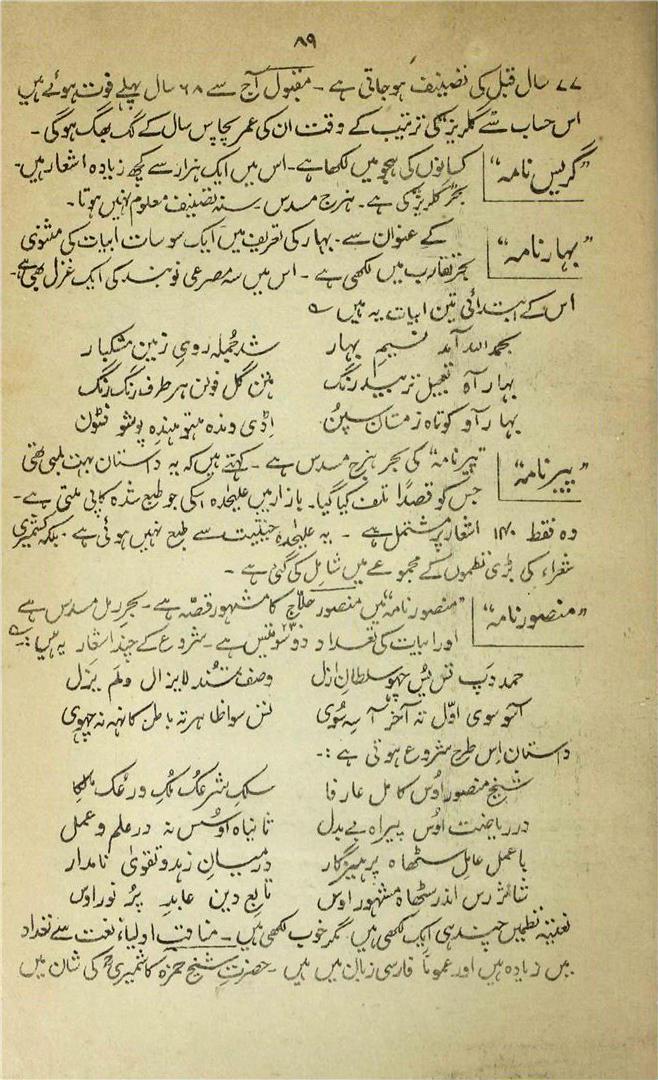 ۸۹
۷۷ سال قبل کی تصنیف ہوجاتی ہے ۔ مقبول آج سے ۶۸ سال پہلے فوت ہوئے ہیں
اس حساب سے گلریز کی ترتیب کے وقت ان کی عمر پچاس سال کے لگ بھگ ہوگی ۔
”گریس نامہ“ کسانوں کی ہجو میں لکھا ہے۔ اس میں ایک ہزار سے کچھ زیادہ اشعار ہیں۔
بحر گلریز کی ہے۔ ہزج مسدس ۔ سنہ تصنیف معلوم نہیں ہوتا ۔
”بہار نامہ“ کے عنوان سے۔ بہار کی تعریف میں ایک سو سات ابیات کی مثنوی
بحر تقارب میں لکھی ہے ۔ اس میں سہ مصرعی نو بند کی ایک غزل بھی ہے۔
اس کے ابتدائی تین ابیات یہ ہیں ؎
بحمد اللہ آمد نسیمِ بہار شد جُملہ روی زمین مشکبار
بہار آہ تعجیل رنگ ہتن گل فولن ہر طرف رنگ رنگ
بہار آو کوتاہ زمستان سپُن اڈی وندہ ہتو ہندہ پوشو نٹون
”پیر نامہ“ ”پیر نامہ“ کی بحر ہزج مسدس ہے ۔ کہتے ہیں کہ یہ داستان بہت لمبی تھی
جس کو قصداً تلف کیا گیا۔ بازار میں علیٰحدہ اسکی جو طبع شدہ کاپی ملتی ہے ۔
وہ فقط اشعار پر مشتمل ہے ۔ یہ علیٰحدہ حیثیت سے طبع نہیں ہوئی ہے ۔ بلکہ کشمیری
شعراء کی بڑی نظموں کے مجموعے میں شامل کی گئی ہے ۔
”منصور نامہ“ ”منصور نامہ“ میں منصور حلاج کا مشہور قصہ ہے ۔ بحر رمل مسدس ہے
اور ابیات کی تعداد دو سو تیس ۲۳۰ ہے ۔ شروع کے چند اشعار یہ ہیں :۔ ؎
حمد دپ تس یُس چھو سلطانِ ازل وصف تُند لایزال ولم یزل
آسو سوی اوّل تہ آخر آسہ سُوی نس سوا ظاہر تہ باطن کانہہ نہ چھوی
داستان اس طرح شروع ہوتی ہے :۔
شیخ منصور اوس کامل عارفا سلکِ شرعُک مُلکِ ورعُک
در ریاضت اوس پیراہ بے بدل ثانیاہ اوسُس نہ در علم و عمل
باعمل عامل سٹھاہ پرہیزگار در میانِ زہد و تقویٰ نامدار
اندر سٹھاہ مشہور اوس تابع دین عابدِ پُر نور اوس
نعتیہ نظمیں چند ہی ایک لکھی ہیں مگر خوب لکھی ہیں ۔ مناقبِ اولیاء نعت سے تعداد
میں زیادہ ہیں اور عموماً فارسی زبان میں ہیں ۔ حضرت شیخ حمزہ کاشمیریؒ کی شان میں